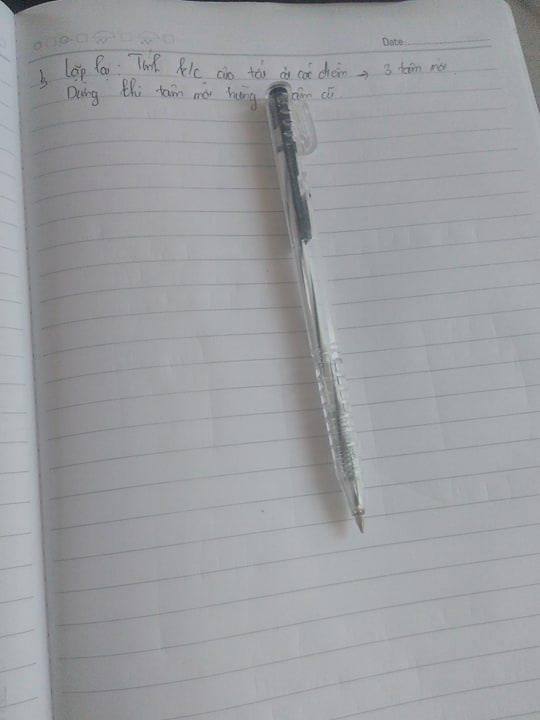 Date
↳ Lặp lại: Tính k/c của tất cả các điểm → 3 tâm mới.
Dừng khi tâm mới trùng tâm cũ